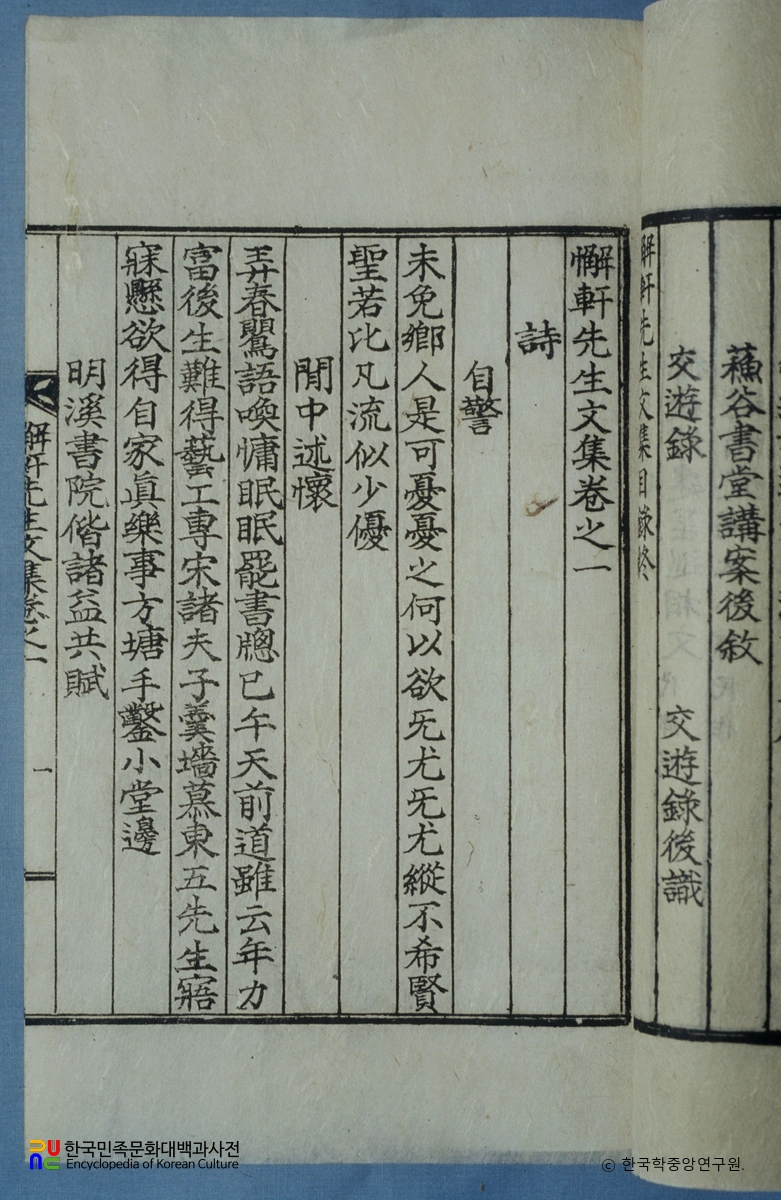 蘓谷書堂講案後敘
交遊錄 交遊錄後識
懈軒先生文集目錄終
懈軒先生文集卷之一
詩
自警
未免鄉人是可憂憂之何以欲旡尤旡尤縱不希賢
聖若比凡流似少優
閒中述懷
弄春鸎語喚慵眠眠罷書牕已午天前道雖云年力
富後生難得藝工專宋諸夫子羹墻慕東五先生寤
寐懸欲得自家眞樂事方塘手鑿小堂邊
明溪書院偕諸益共賦
懈軒先生文集卷之一 一
한국민족문화대백과사전
Encyclopedia of Korean Culture
© 한국학중앙연구원.